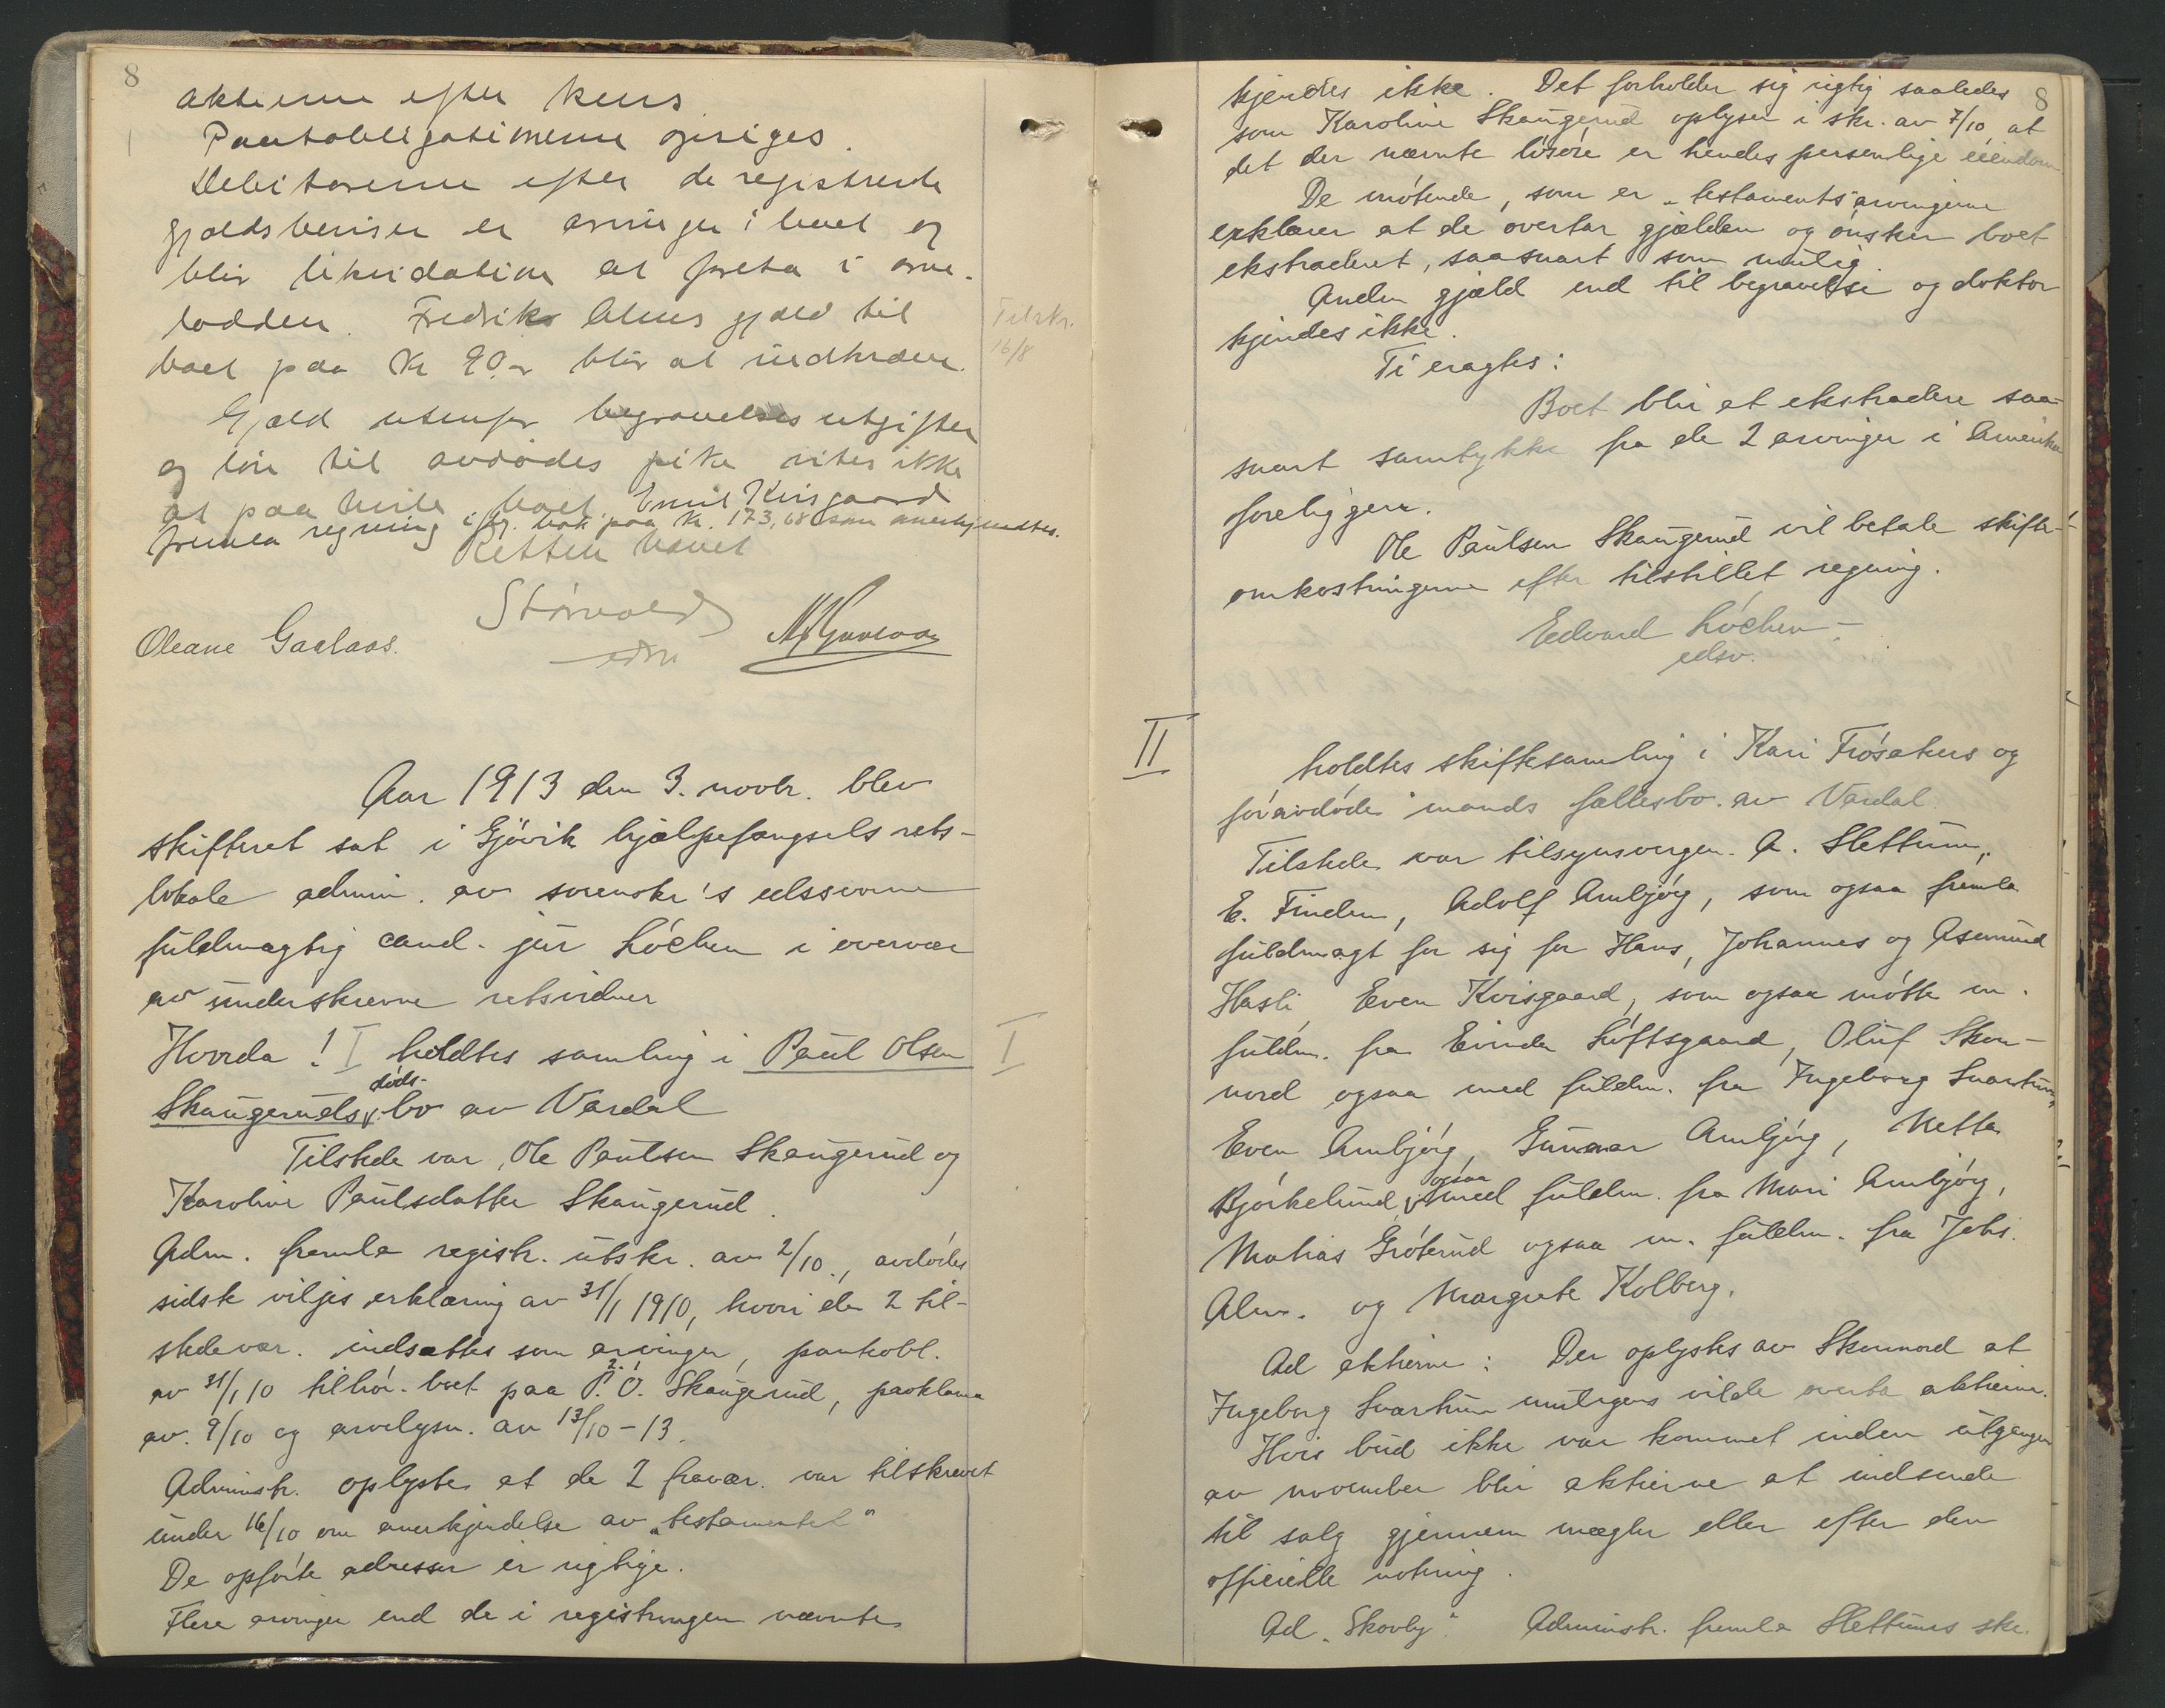 8
aktierne efter kurs
Pantobligationerne opsiges.
Debitorerne efter de registrerte
gjældsbeviser er arvinger i boet og
blir likvidation at foreta i arve-
lodden. Fredrik Alms gjæld til
boet paa Kr 90.- blir at indkræve.
Tilskr.
16/8
Gjæld utenfor begravelsesutgifter
og løn til avdødes pike vites ikke
at paa hvile boet. Emil Kvisgaard
fremla regning i flg. bok paa kr. 173,68 som anerkjendtes.
Retten hævet
Størvold
edsv
Oleane Gaalaas.
Aar 1913 den 3. novbr. blev
skifteret sat i Gjövik hjælpefængsels rets-
lokale admin. av sorenskr's edssvorne
fuldmægtig cand. jur Lóchen i overvær
av underskrevne retsvidner
Hvorda! I holdtes samling i Paul Olsen
I
Skaugeruds døds-bo av Vardal
Tilstede var, Ole Paulsen Skaugerud og
Karoline Paulsdatter Skaugerud.
Adm. fremla registr. utskr. av 2/10, avdødes
sidste viljes erklæring av 31/1 1910, hvori de 2 til-
stedevær. indsættes som arvinger, pantobl.
av 31/1 10 tilhór. boet paa P. O. Skaugerud, proklama
av 9/10 og arvelysn. av 13/10-13.
Adminstr. oplyste at de 2 fravær. var tilskrevet
under 16/10 om anerkjendelse av „testamentet"
De opfórte adresser er rigtige.
Flere arvinger end de i registringen nævnte
8
kjendes ikke. Det forholder sig rigtig saaledes
som Karoline Skaugerud oplyser i skr. av 7/10, at
det der nævnte lósóre er hendes personlige eiendom.
De mótende, som er „testaments"arvingerne
erklærer at de overtar gjælden og ónsker boet
ekstradert, saasnart som mulig.
Anden gjæld end til begravelse og doktor
kjendes ikke.
Ti eragtes:
Boet blir at ekstradere saa-
snart samtykke fra de 2 arvinger i Amerika
foreligger.
Ole Paulsen Skaugerud vil betale skifte-
omkostningerne efter tilstillet regning.
Edvard Lóchen
edsv.
II
holdtes skiftesamling i Kari Frósakers og
foravdóde mands fællesbo av Vardal.
Tilstede var tilsynsvergen A. Slettum,
E. Finden, Adolf Ambjórg, som ogsaa fremla
fuldmagt for sig for Hans, Johannes og Asmund
Hasli, Even Kvisgaard, som ogsaa mótte m.
fuldm. fra Eivinda Lóftsgaard, Oluf Sken-
nord ogsaa med fuldm. fra Ingeborg Svartum,
Even Ambjórg, Gunnar Ambjórg, Netta
Bjórkelund, ogsaa med fuldm. fra Mari Ambjórg,
Matias Gróterud ogsaa m. fuldm. fra Johs.
Alm. og Margrete Kolberg.
Ad aktierne: Der oplystes av Skennord at
Ingeborg Svartum muligens vilde overta aktierne.
Hvis bud ikke var kommet inden utgangen
av november blir aktierne at indsende
til salg gjennem mægler eller efter den
officielle notering.
Ad „Skovly". Adminstr. fremla Slettums skr.